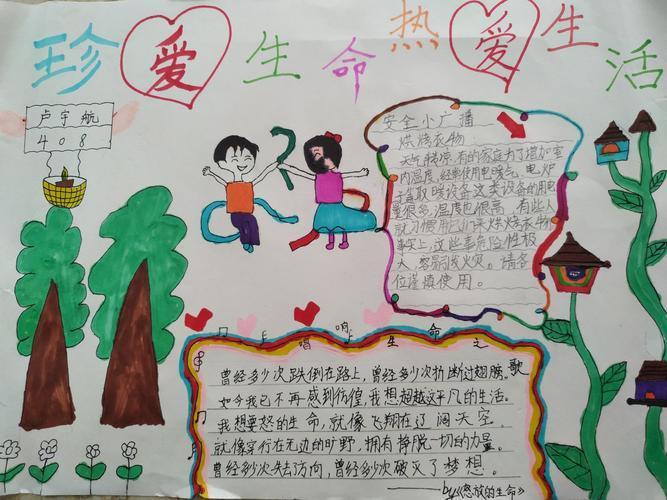 珍爱生命热爱生活
卢宇航
408
安全小广播
烘烤衣物:
天气转凉,有的家庭为了增加室
内温度,经常使用电暖气、电炉
子等取暖设备。这类设备的用电
量很多,温度也很高。有些人
就习惯用它们来烘烤衣物,
事实上,这些事危险性极
大,容易引发火灾。请各
位谨慎使用。
唱响生命之歌
曾经多少次跌倒在路上,曾经多少次折断过翅膀。
如今我已不再感到彷徨,我想超越这平凡的生活。
我想要怒的生命,就像飞翔在辽阔天空,
就像穿行在无边的旷野,拥有挣脱一切的力量。
曾经多少次失去方向,曾经多少次破灭了梦想。
——by《怒放的生命》